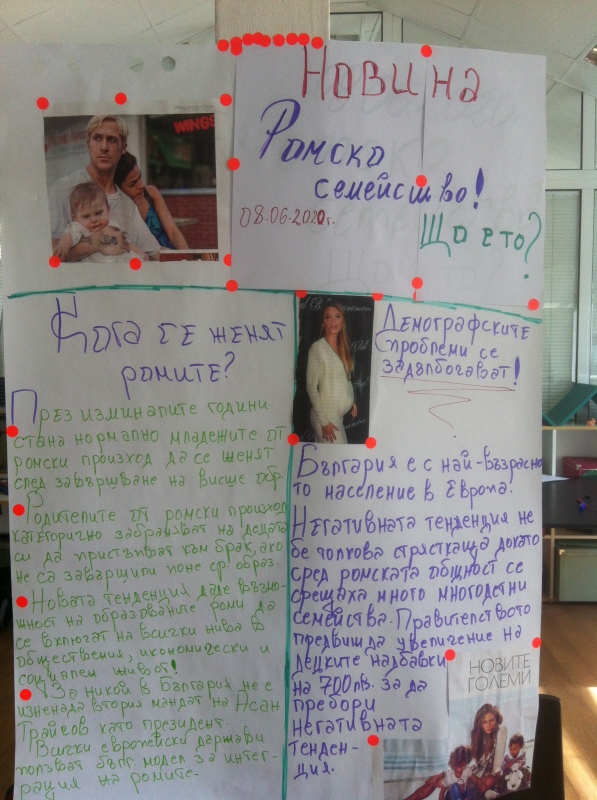 WINGS
НОВИНА
Ромско
семейство!
08.06.2020г.
Що е то?
Кога се женят
ромите?
През изминалите години
стана нормално младежите от
ромски произход да се женят
след завършване на висше обр.
Родителите от ромски произход
категорично забраняват на децата
си да пристъпват към брак, ако
не са завършили поне ср. образ.
Новата тенденция даде възмо-
жност на образованите роми да
се включат на всички нива в
обществения, икономически и
социален живот!
За никой в България не е
изненада втория мандат на Асан
Трайчов като президент.
Всички европейски държави
ползват бълг. модел за интег-
рация на ромите.
Демографските
проблеми се
задълбочават!
България е с най-възрасно
то население в Европа.
Негативната тенденция не
бе толкова стряскаща докато
сред ромската общност се
срещаха много многодетни
семейства. Правителството
предвижда увеличение на
децките надбавки
на 700лв. за да
пребори
негативната
тенден-
ция.
НОВИТЕ
ГОЛЕМИ